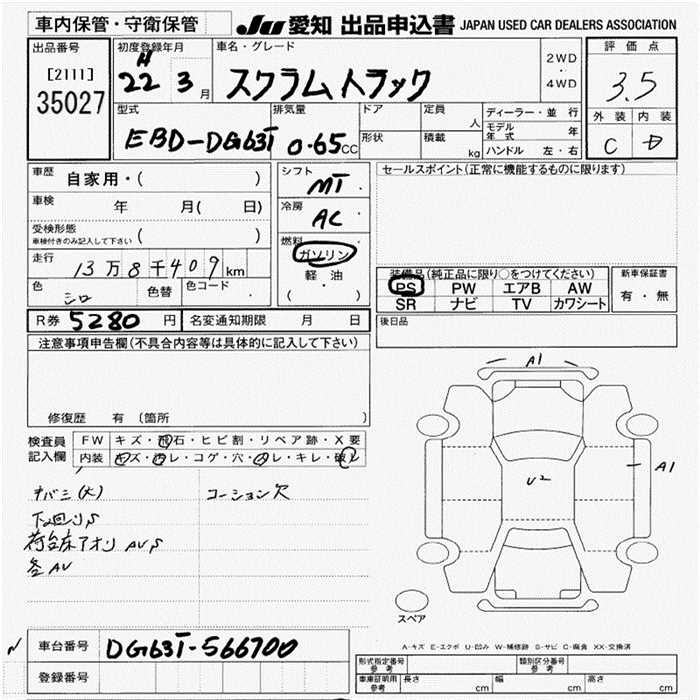 車内保管・守衛保管 JU 愛知 出品申込書 JAPAN USED CAR DEALERS ASSOCIATION
出品番号 初度登録年月 車名・グレード 2WD ・ 4WD 評価点
[2111] H 22 3月 スクラムトラック 3.5
35027 型式 排気量 ドア 定員 人 ディーラー・並行 外装 内装
EBD-DG63T 0.65cc 形状 積載 kg モデル年式 年 C D
ハンドル 左・右
車歴 自家用・( ) シフト MT セールスポイント(正常に機能するものに限ります)
車検 年 月( 日) 冷房 AC
受検形態 車検付きのみ記入して下さい ( ) 燃料 ガソリン
走行 13万8千409km 軽油 装備品(純正品に限り○をつけてください) 新車保証書
色 シロ 色替 色コード ( ・ ) PS PW エアB AW 有・無
SR ナビ TV カワシート
R券 5280円 名変通知期限 月 日 後日品
注意事項申告欄(不具合内容等は具体的に記入して下さい)
A1
修復歴 有(箇所
検査員 FW キズ・飛石・ヒビ割・リペア跡・X要
記入欄 内装 キズ・汚レ・コゲ・穴・スレ・キレ・破レ
A1
U2
キバミ(大) コーション欠
下回りS
荷台床アオリ AUS
各AU
スペア
車台番号 DG63T-566700
A-キズ E-エクボ U-凹み W-補修跡 S-サビ C-腐食 XX-交換済
登録番号 形式指定番号 参考 類別区分番号 参考
車庫証明用 参考 長さ cm 幅 cm 高さ cm